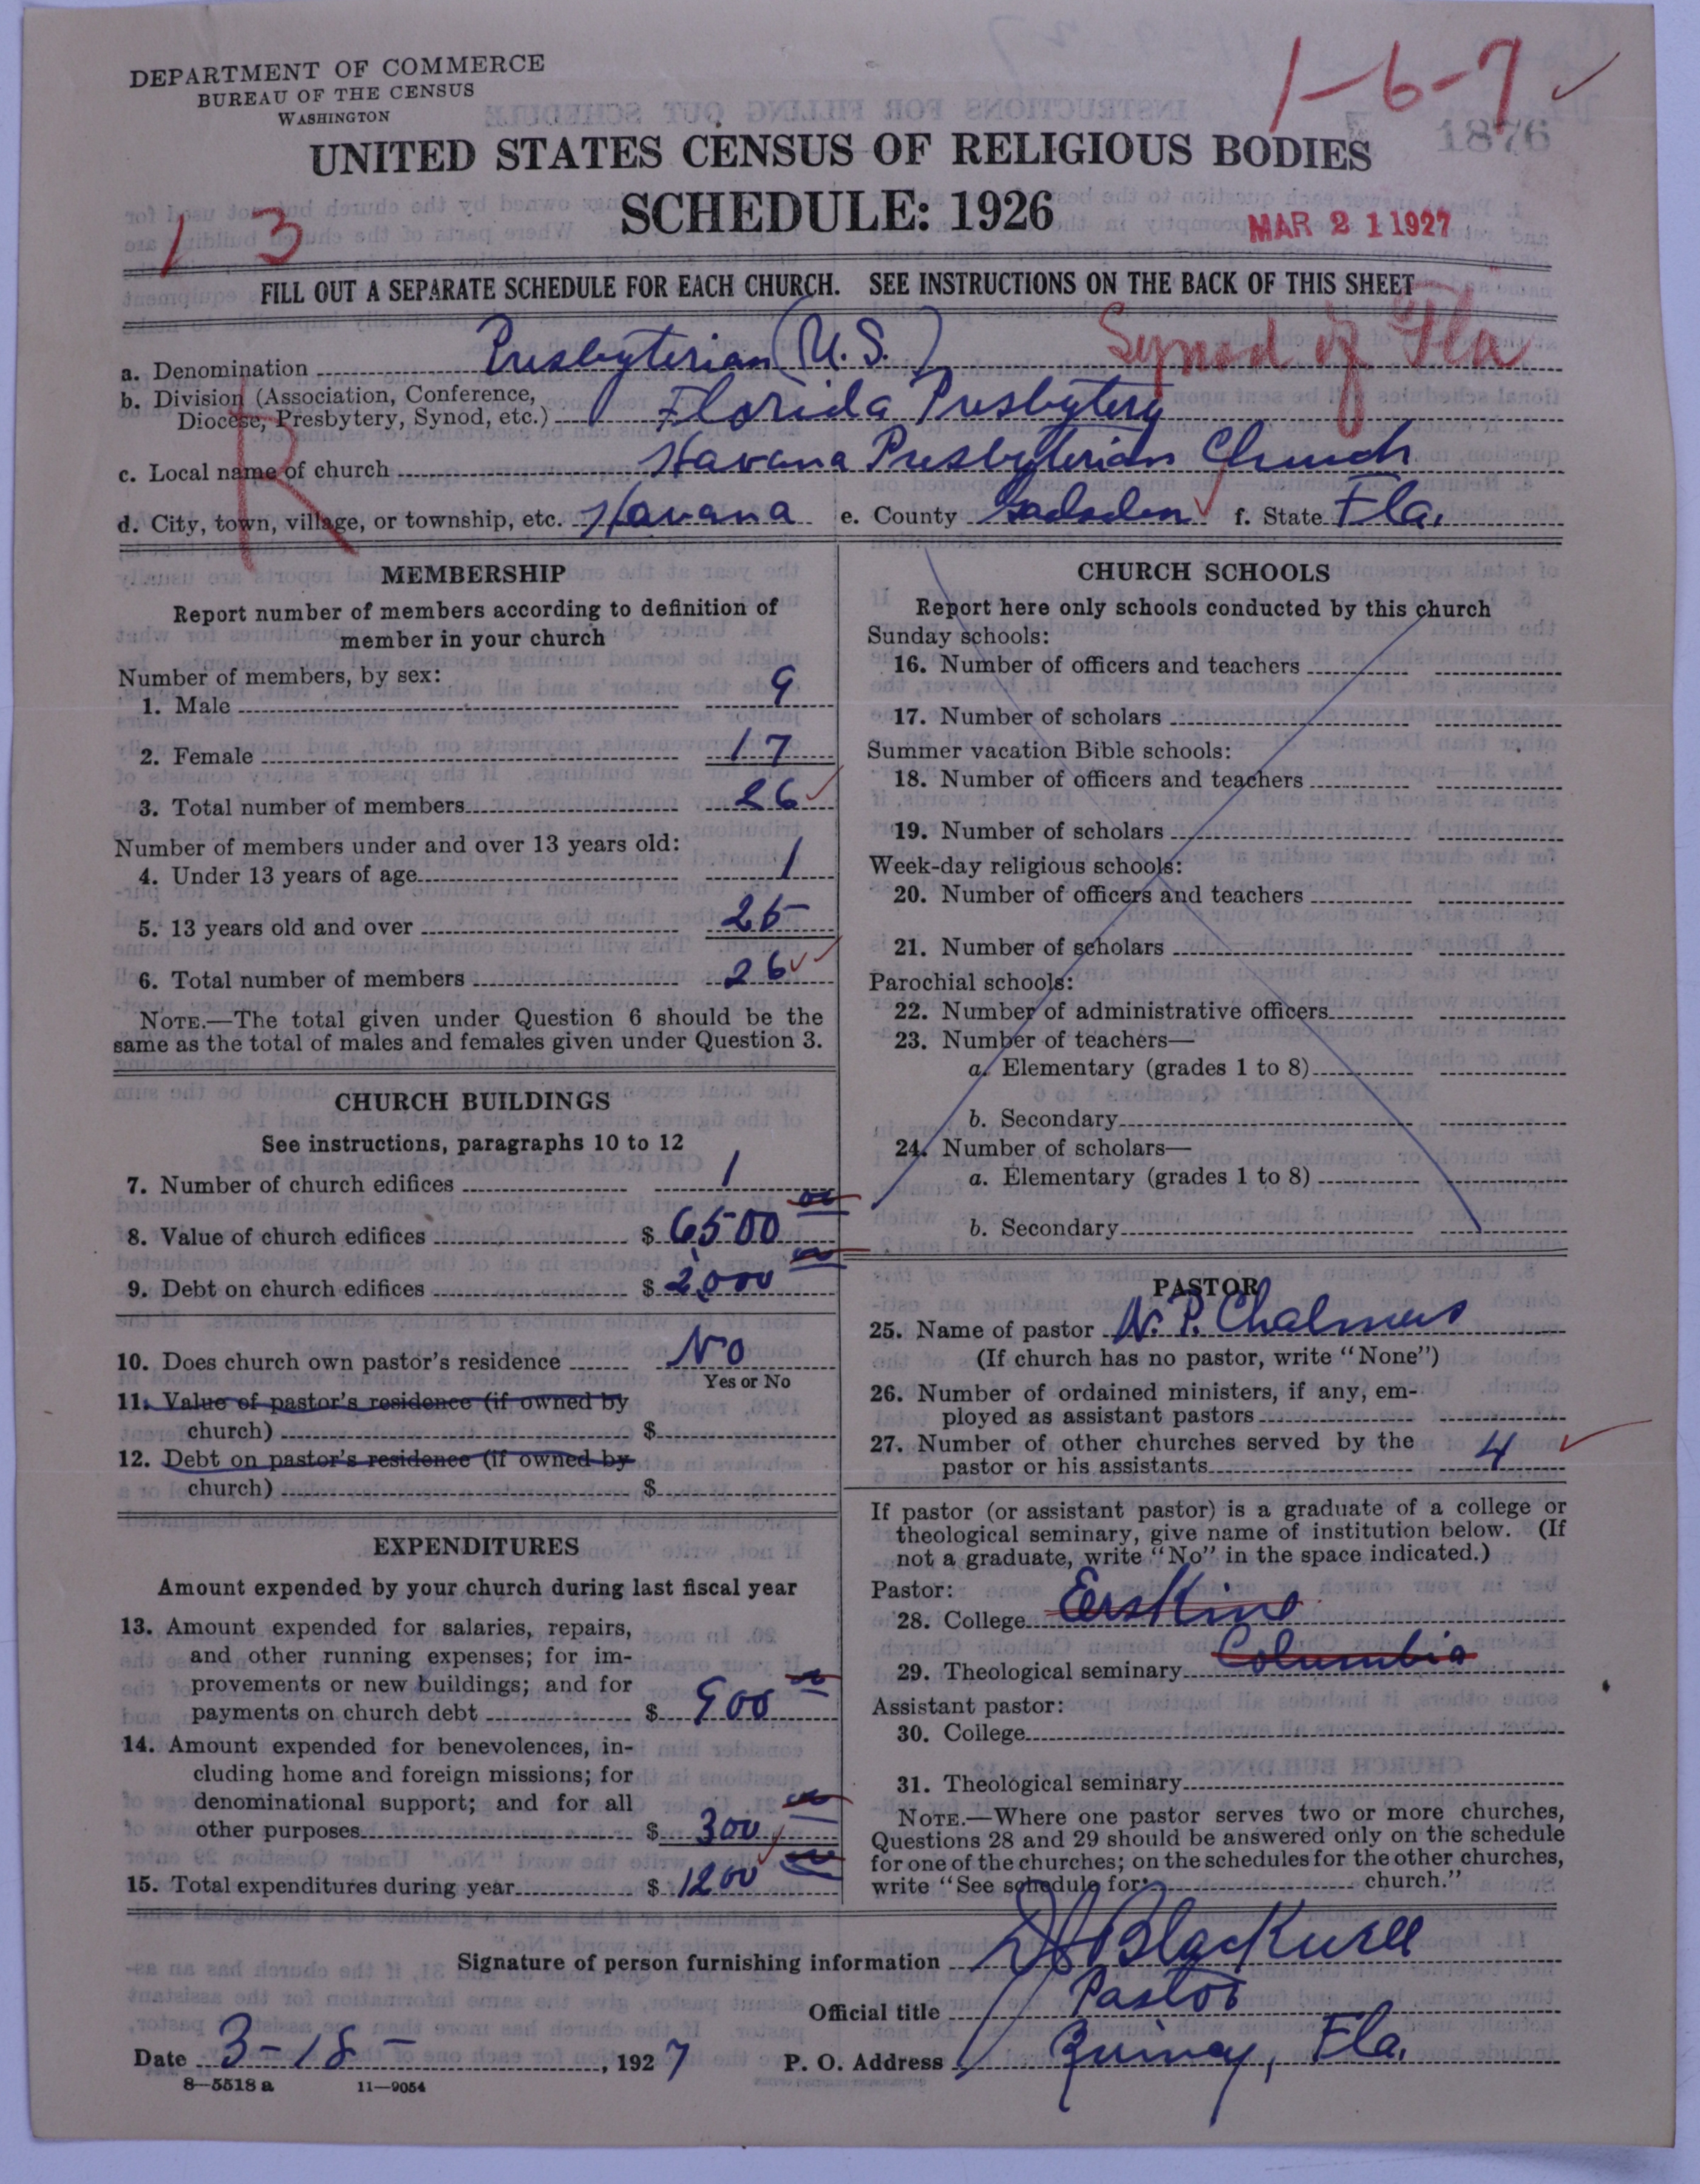 DEPARTMENT OF COMMERCE
BUREAU OF THE CENSUS
WASHINGTON
1-6-7 ✓
1876
UNITED STATES CENSUS OF RELIGIOUS BODIES
SCHEDULE: 1926
1 3
MAR 21 1927
FILL OUT A SEPARATE SCHEDULE FOR EACH CHURCH. SEE INSTRUCTIONS ON THE BACK OF THIS SHEET
Synod of Fla
a. Denomination Presbyterian (U.S.)
b. Division (Association, Conference,
Diocese, Presbytery, Synod, etc.) Florida Presbytery
R
c. Local name of church Havana Presbyterian Church
d. City, town, village, or township, etc. Havana e. County Gadsden ✓ f. State Fla.
MEMBERSHIP
Report number of members according to definition of
member in your church
Number of members, by sex:
1. Male 9
2. Female 17
3. Total number of members 26 ✓
Number of members under and over 13 years old:
4. Under 13 years of age 1
5. 13 years old and over 25
6. Total number of members 26 ✓✓
NOTE.—The total given under Question 6 should be the
same as the total of males and females given under Question 3.
CHURCH BUILDINGS
See instructions, paragraphs 10 to 12
7. Number of church edifices 1
8. Value of church edifices $ 6500 00
9. Debt on church edifices $ 2,000 00
10. Does church own pastor's residence No
Yes or No
11. Value of pastor's residence (if owned by
church) $
12. Debt on pastor's residence (if owned by
church) $
EXPENDITURES
Amount expended by your church during last fiscal year
13. Amount expended for salaries, repairs,
and other running expenses; for im-
provements or new buildings; and for
payments on church debt $ 900 00
14. Amount expended for benevolences, in-
cluding home and foreign missions; for
denominational support; and for all
other purposes $ 300 00
15. Total expenditures during year $ 1200 00
CHURCH SCHOOLS
Report here only schools conducted by this church
Sunday schools:
16. Number of officers and teachers
17. Number of scholars
Summer vacation Bible schools:
18. Number of officers and teachers
19. Number of scholars
Week-day religious schools:
20. Number of officers and teachers
21. Number of scholars
Parochial schools:
22. Number of administrative officers
23. Number of teachers—
a. Elementary (grades 1 to 8)
b. Secondary
24. Number of scholars—
a. Elementary (grades 1 to 8)
b. Secondary
PASTOR
25. Name of pastor W. P. Chalmers
(If church has no pastor, write "None")
26. Number of ordained ministers, if any, em-
ployed as assistant pastors
27. Number of other churches served by the
pastor or his assistants 4 ✓
If pastor (or assistant pastor) is a graduate of a college or
theological seminary, give name of institution below. (If
not a graduate, write "No" in the space indicated.)
Pastor:
28. College Erskine
29. Theological seminary Columbia
Assistant pastor:
30. College
31. Theological seminary
NOTE.—Where one pastor serves two or more churches,
Questions 28 and 29 should be answered only on the schedule
for one of the churches; on the schedules for the other churches,
write "See schedule for church."
Signature of person furnishing information Blackwell
Official title Pastor
Date 3-18-, 1927 P. O. Address Quincy, Fla.
8—5518 a 11—9054